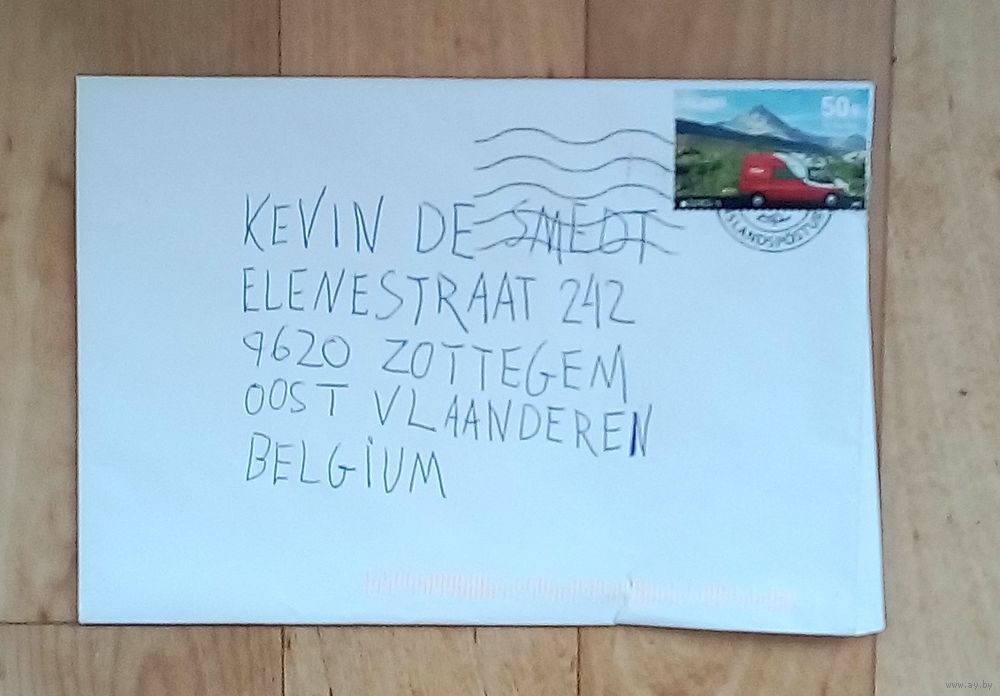 50g
ÍSLANDSPÓSTUR
KEVIN DE SMEDT
ELENESTRAAT 242
9620 ZOTTEGEM
OOST VLAANDEREN
BELGIUM
www.ay.by